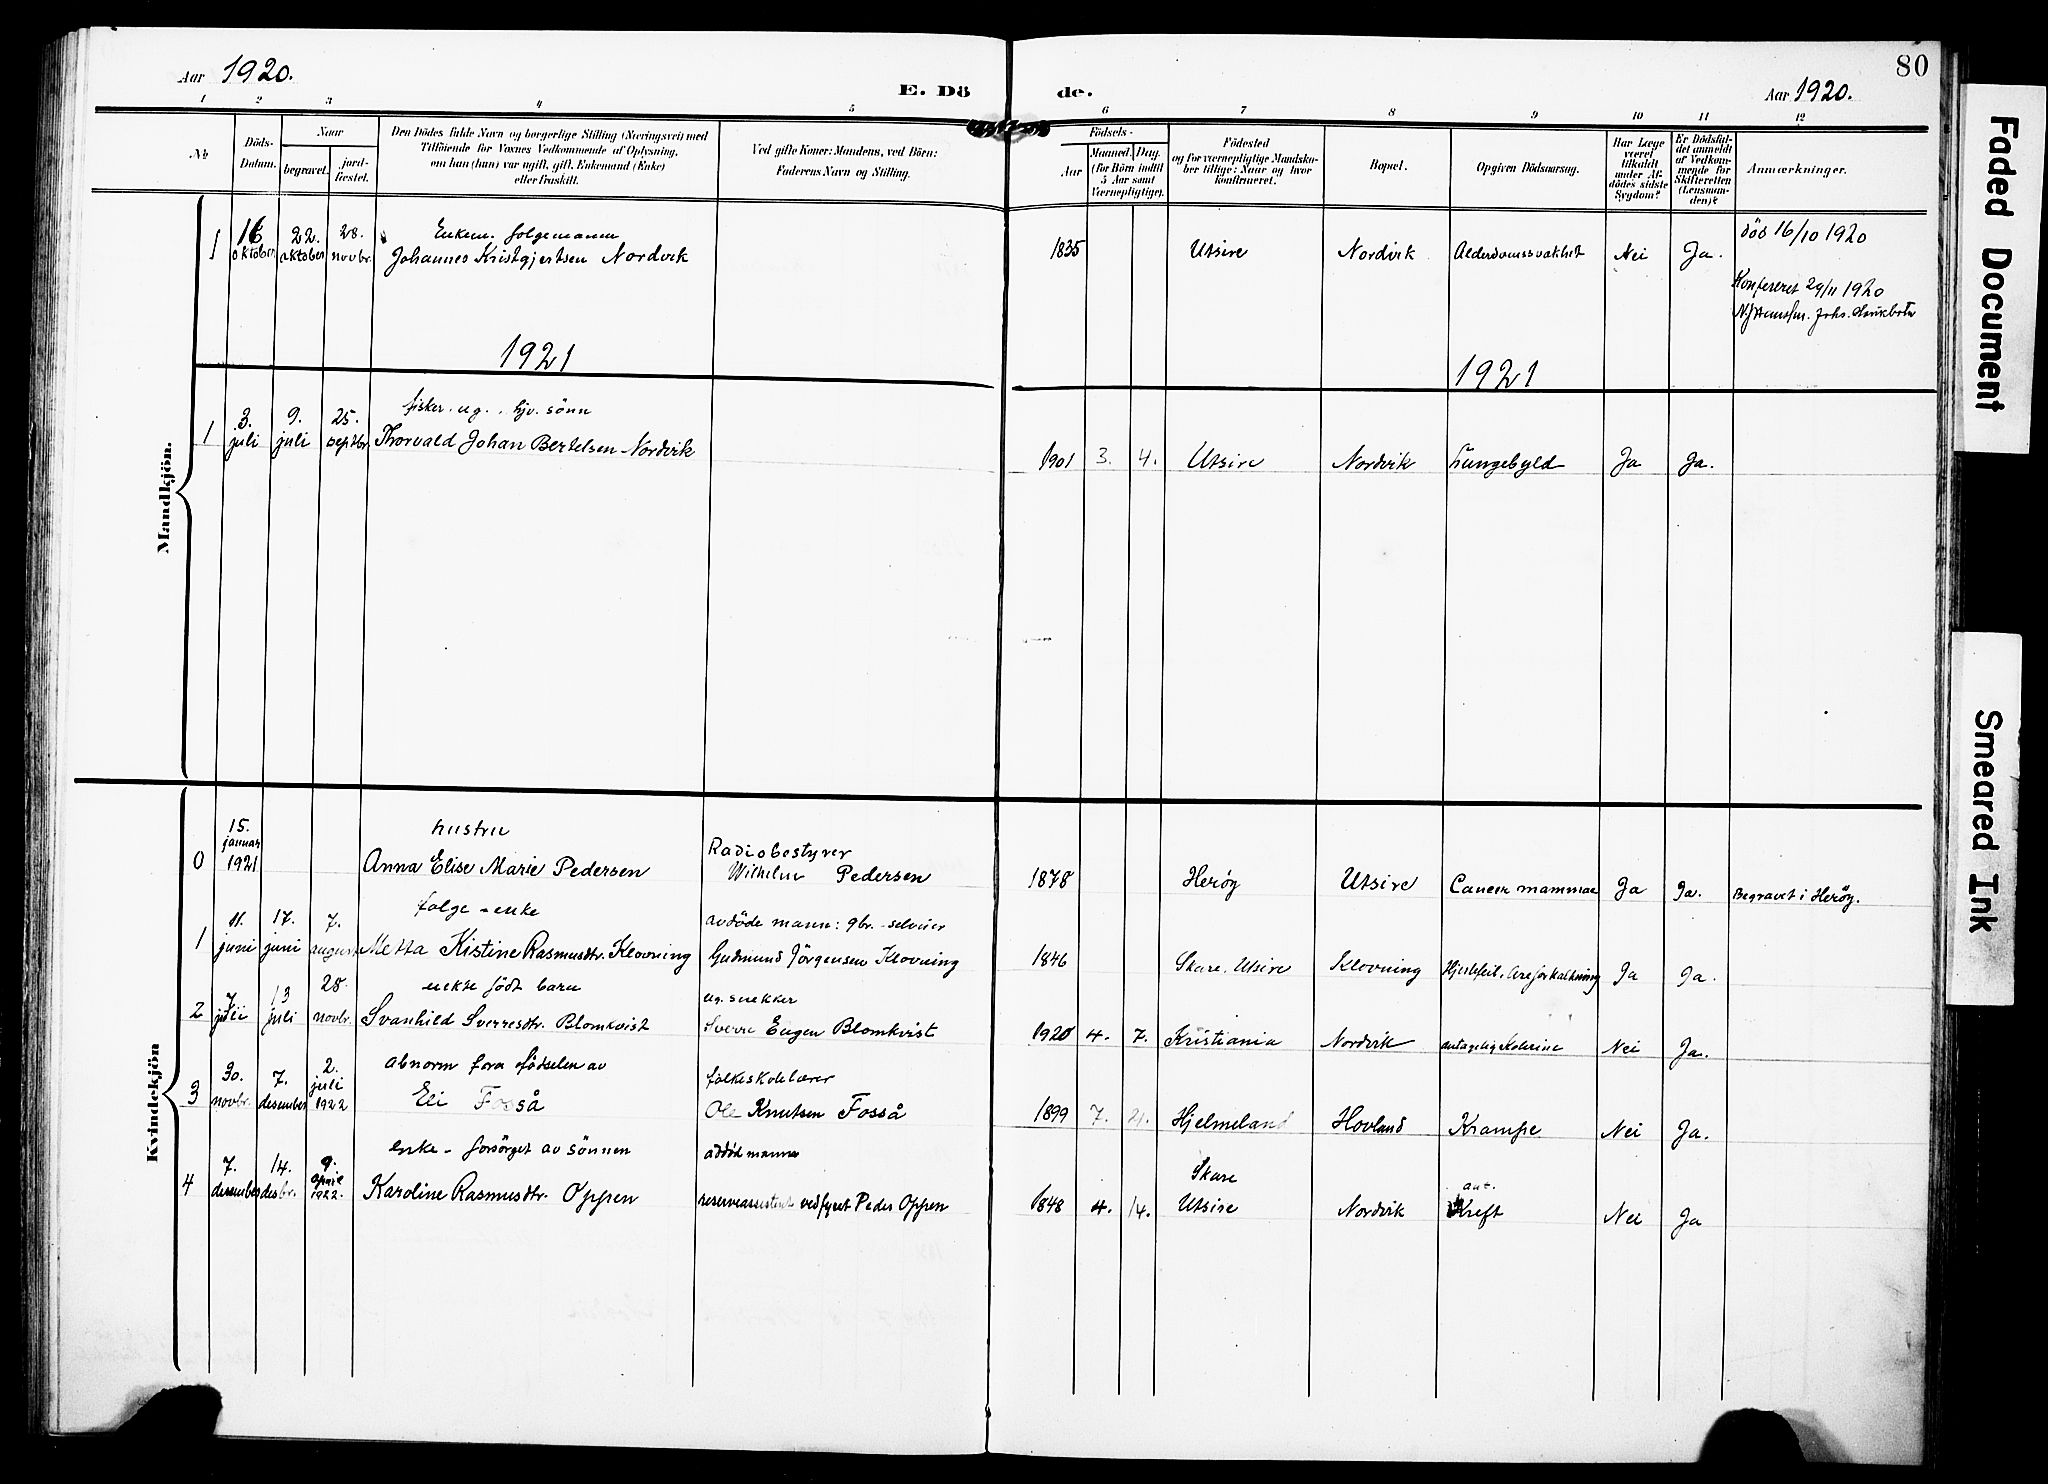 80
Aar 1920.
E. Dö
de.
Aar 1920.
1 2 3 4 5 6 7 8 9 10 11 12
No
Döds-
Datum.
Naar
begravet.
jord-
fæstet.
Den Dödes fulde Navn og borgerlige Stilling (Næringsvei) med
Tilföiende for Voxnes Vedkommende af Oplysning,
om han (hun) var ugift, gift, Enkemand (Enke)
eller fraskilt.
Ved gifte Koner: Mandens, ved Börn:
Faderens Navn og Stilling.
Födsels-
Aar
Maaned. Dag.
(for Börn indtil
5 Aar samt
Værnepligtige).
Födested
og for værnepligtige Mandska-
ber tillige: Naar og hvor
konfirmeret.
Bopæl.
Opgiven Dödsaarsag.
Har Læge
været
tilkaldt
under Af-
dödes sidste
Sygdom?
Er Dödsfal-
det anmeldt
af Vedkom-
mende for
Skifteretten
(Lensman-
den)?
Anmærkninger.
Mandkjön.
Enkem. folgemann
1 16 oktober 22. oktober 28. novbr. Johannes Kristgjertsen Nordvik 1835 Utsire Nordvik Alderdomssvakhet Nei Ja. död 16/10 1920
Konfereret 29/11 1920
1921
1921
fisker. ug.
sönn
1 3. juli 9. juli 25. septbr. Thorvald Johan Bertelsen Nordvik 1901 3. 4. Utsire Nordvik Lungebyld Ja Ja.
Kvindekjön
hustru
Radiobestyrer
0 15. januar 1921 Anna Elise Marie Pedersen Wilhelm Pedersen 1878 Heröy Utsire Cancer mammae Ja Ja. Begravet i Heröy.
folge-enke
avdöde mann: gbr.
1 11. juni 17. juni 7. august Metta Kistine Rasmusdtr. Klovning Gudmund Jörgensen Klovning 1846 Skare, Utsire Klovning Hjertefeil, Areforkalkning Ja Ja.
uekte född barn
ug. snekker
2 7 juli 13 juli 28. novbr. Svanhild Sverresdtr. Blomkvist Sverre Eugen Blomkvist 1920 4. 7. Kristiania Nordvik antagelig Kolerine Nei Ja.
abnorm fora födselen av
folkeskolelærer
3 30. novbr. 7. desember 2. juli 1922 Eli Fosså Ole Knutsen Fosså 1899 7. 21. Hjelmeland Hovland Krampe Nei Ja.
enke - forsörget av sönnen
4 7. desember 14. desbr. 9. april 1922. Karoline Rasmusdtr. Oppen reserveassistent ved fyret Peder Oppen 1848 4. 14. Skare Utsire Nordvik ant. Kreft Nei Ja
Faded Document
Smeared Ink